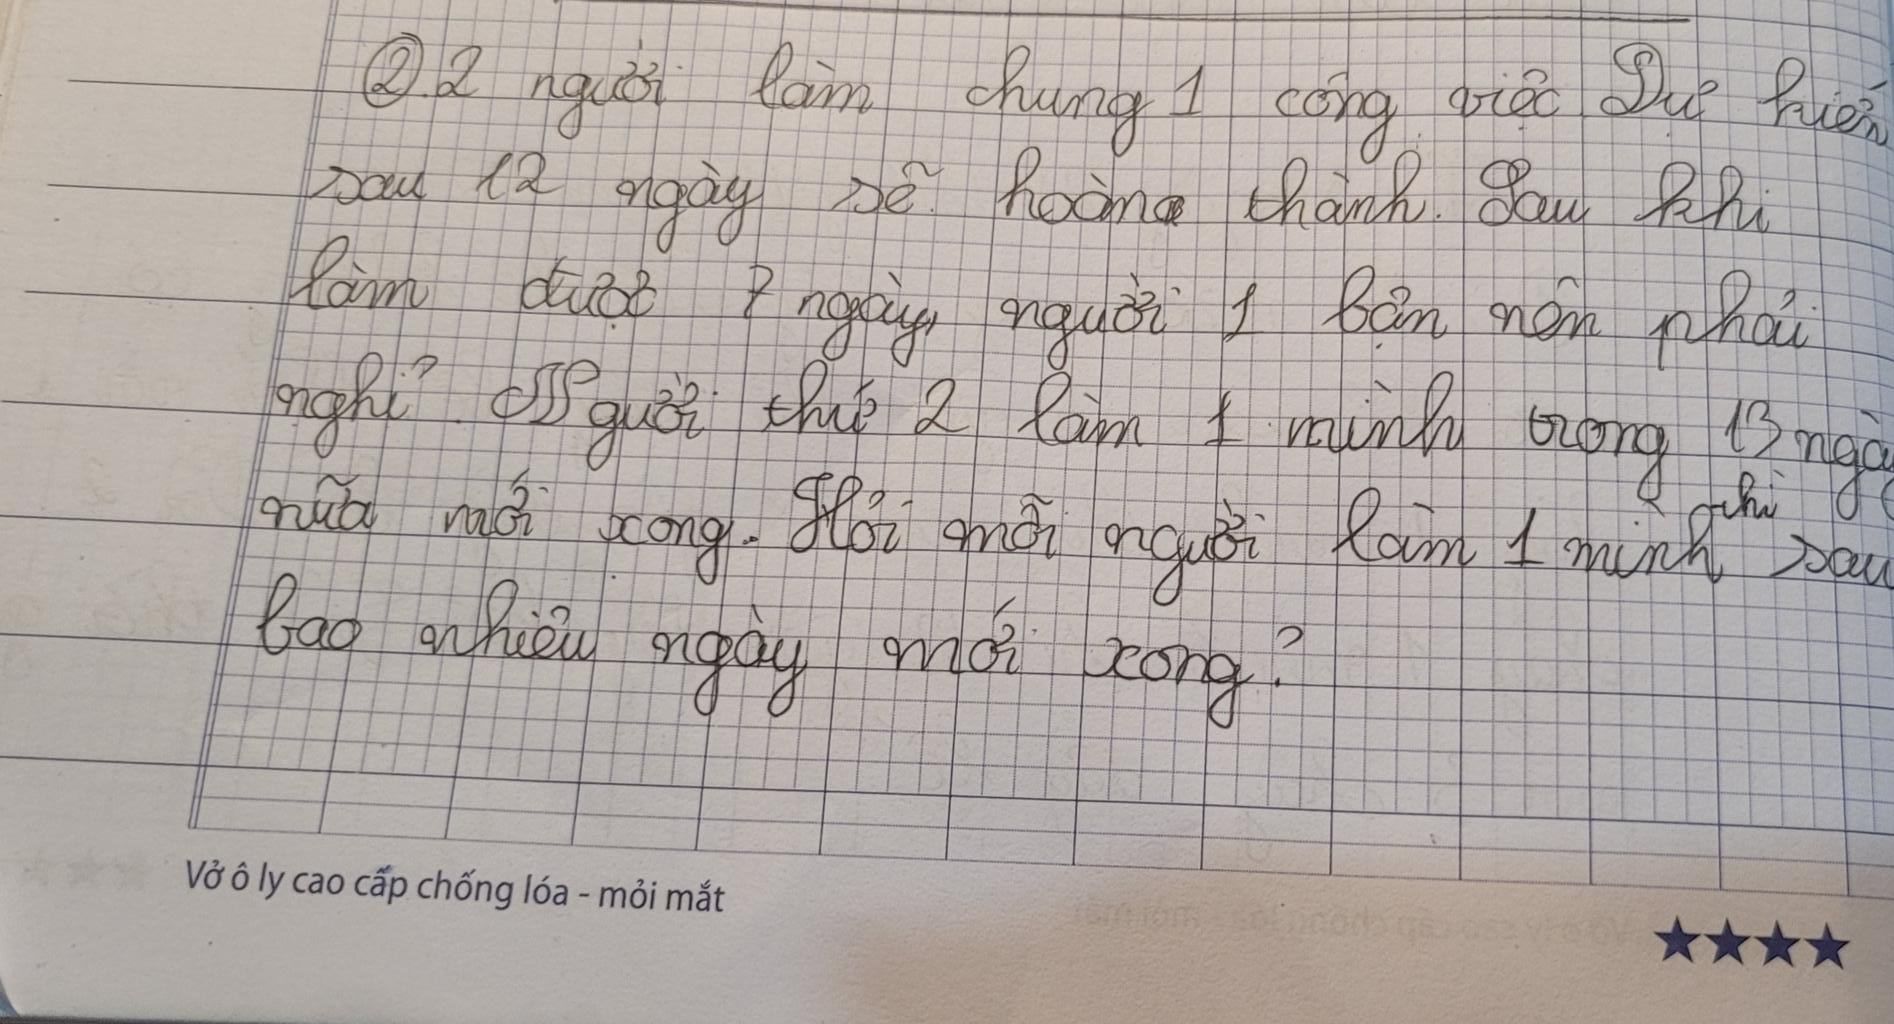 ② 2 người làm chung 1 công việc Dự kiến
sau 12 ngày sẽ hoàn thành. Sau khi
làm được 7 ngày, người 1 bận nên phải
nghỉ. Người thứ 2 làm 1 mình trong 13 ngày
nữa mới xong. Hỏi mỗi người làm 1 mình thì sau
bao nhiêu ngày mới xong?
Vở ô ly cao cấp chống lóa - mỏi mắt